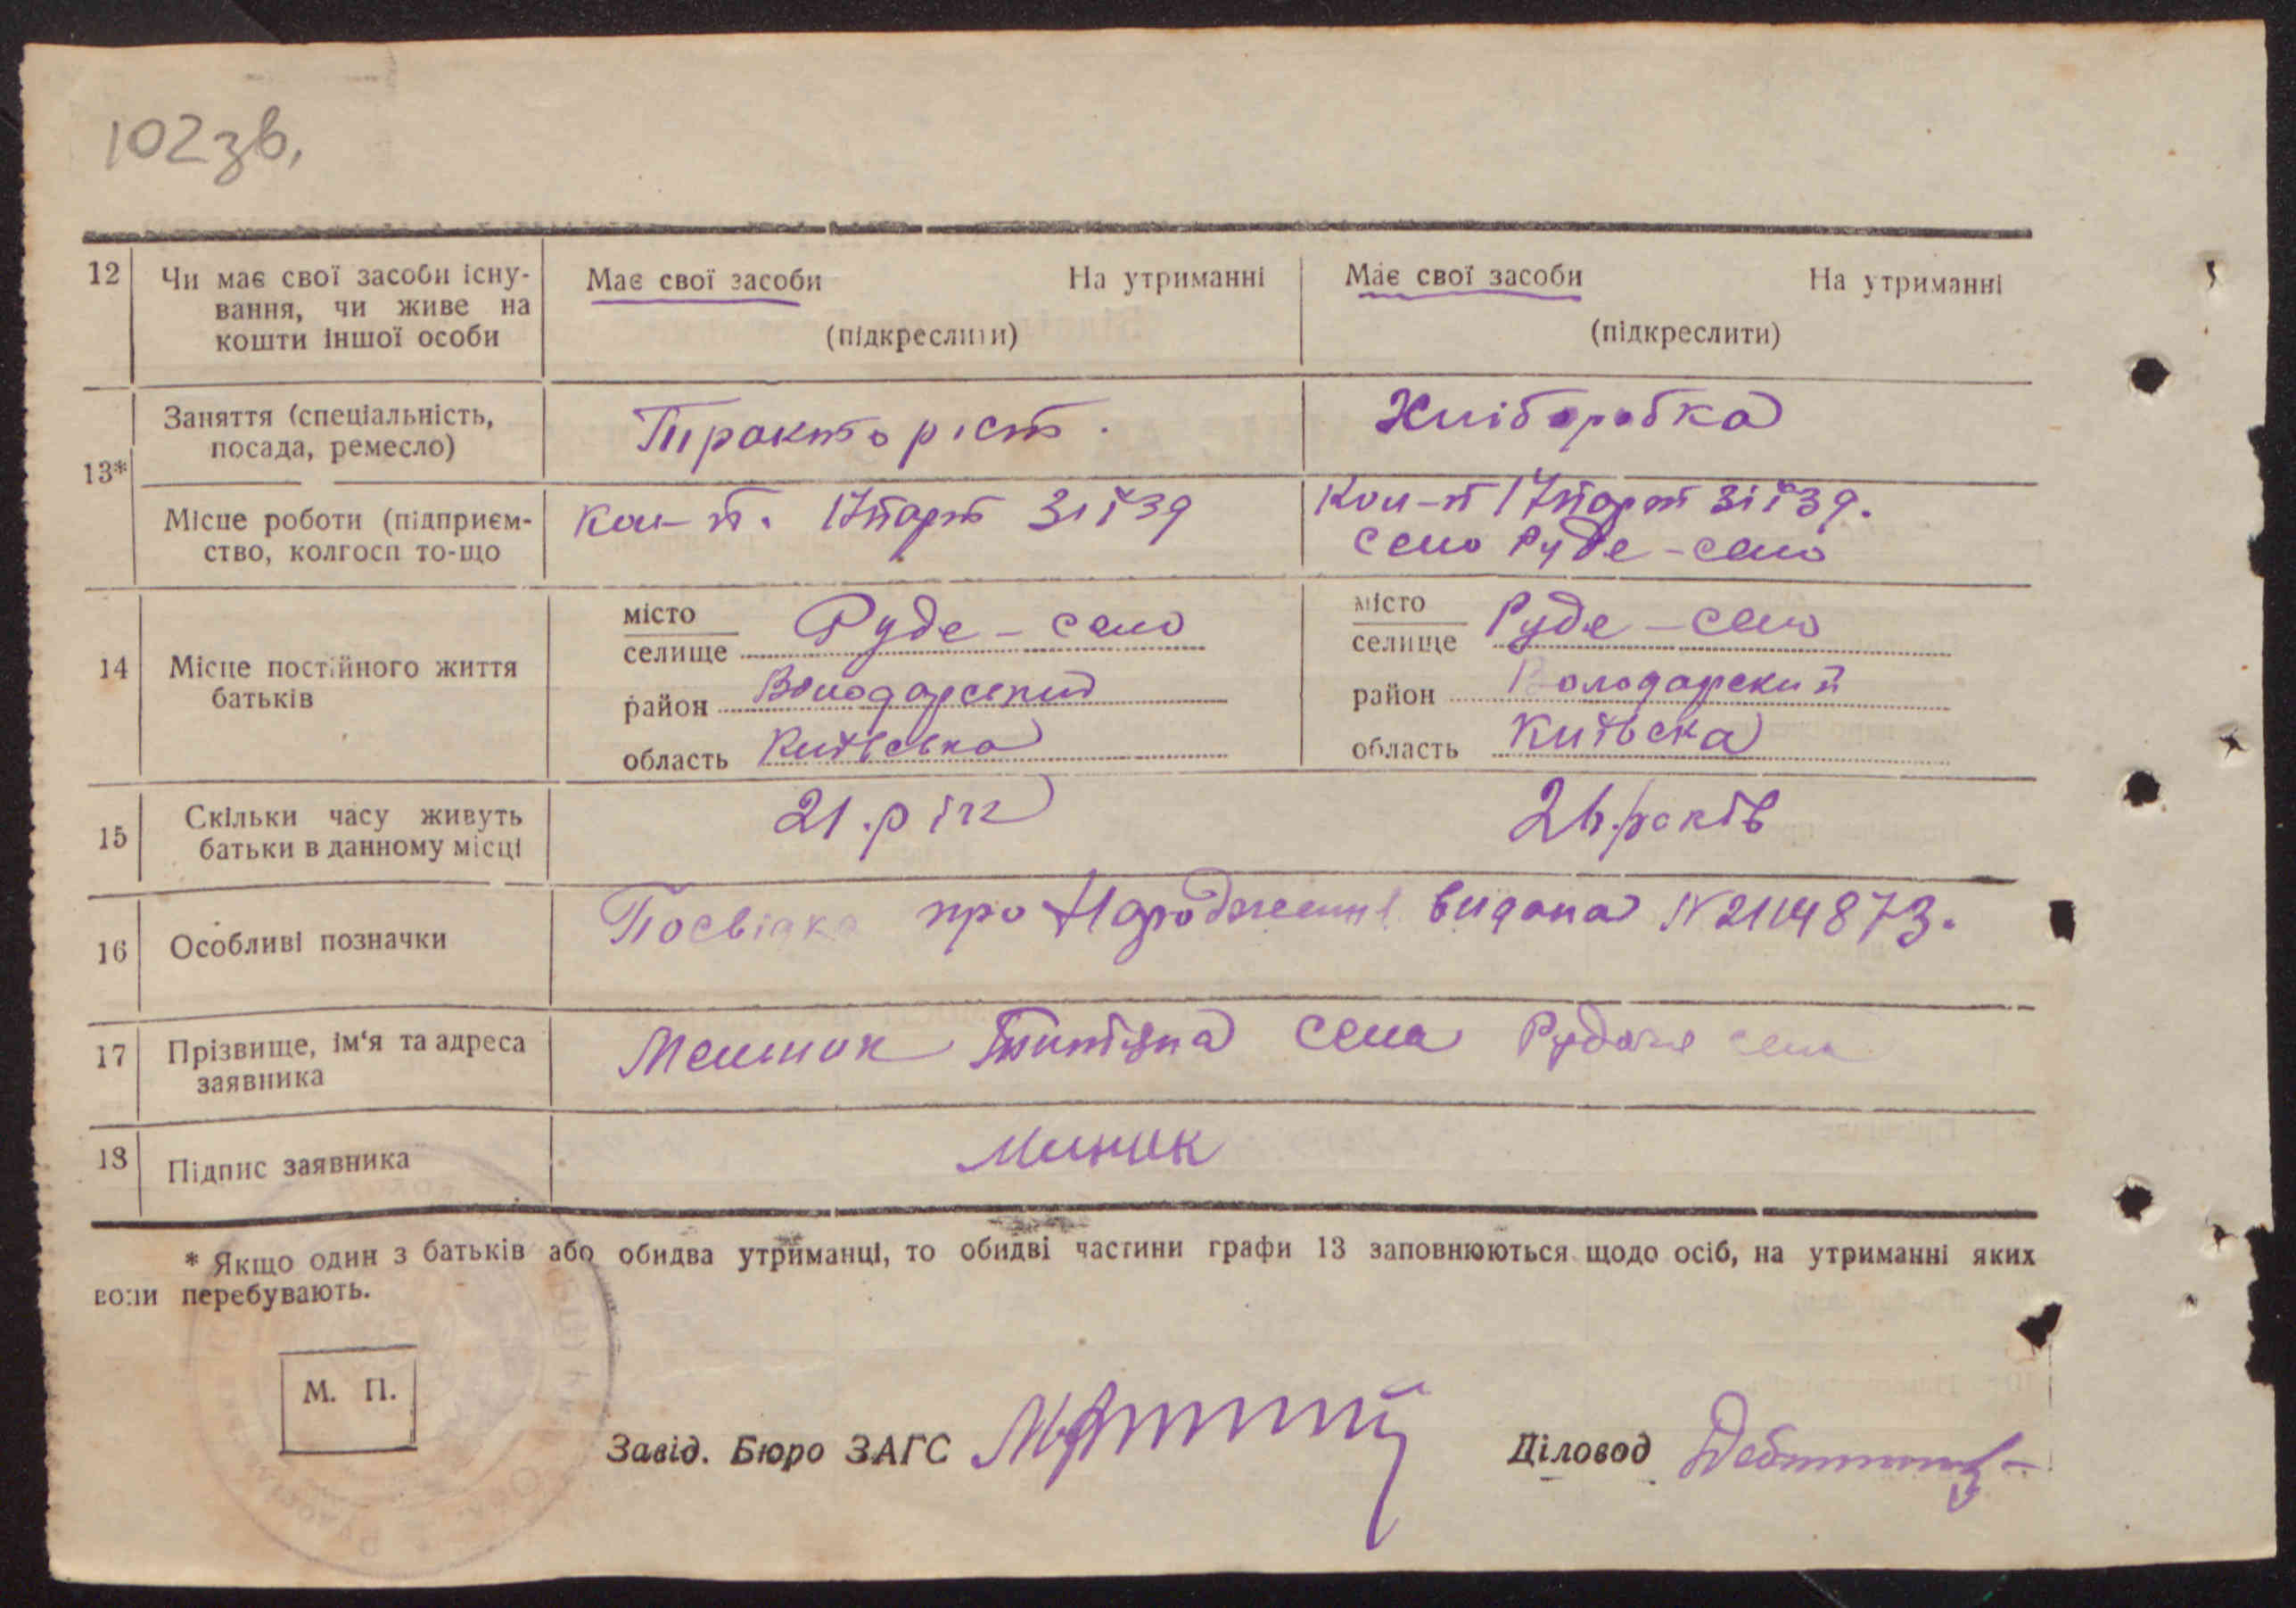 102зв.
12 Чи має свої засоби існу- Має свої засоби На утриманні Має свої засоби На утриманні
вання, чи живе на
кошти іншої особи (підкреслити) (підкреслити)
13* Заняття (спеціальність, Тракторіст. Хліборобка
посада, ремесло)
Місце роботи (підприєм- Кол-п. 17 парт зіїзд Кол-п 17 парт зіїзд.
ство, колгосп то-що село Руде-село
14 Місце постійного життя
батьків
місто Руде-село місто Руде-село
селище селище
район Володарский район Володарский
область Київська область Київска
15 Скільки часу живуть 21.рік 26.років
батьки в данному місці
16 Особливі позначки Посвідка про Народження видана N 2114873.
17 Прізвище, ім'я та адреса села села
заявника
18 Підпис заявника
* Якщо один з батьків або обидва утриманці, то обидві частини графи 13 заповнюються щодо осіб, на утриманні яких
вони перебувають.
М. П.
Завід. Бюро ЗАГС Діловод